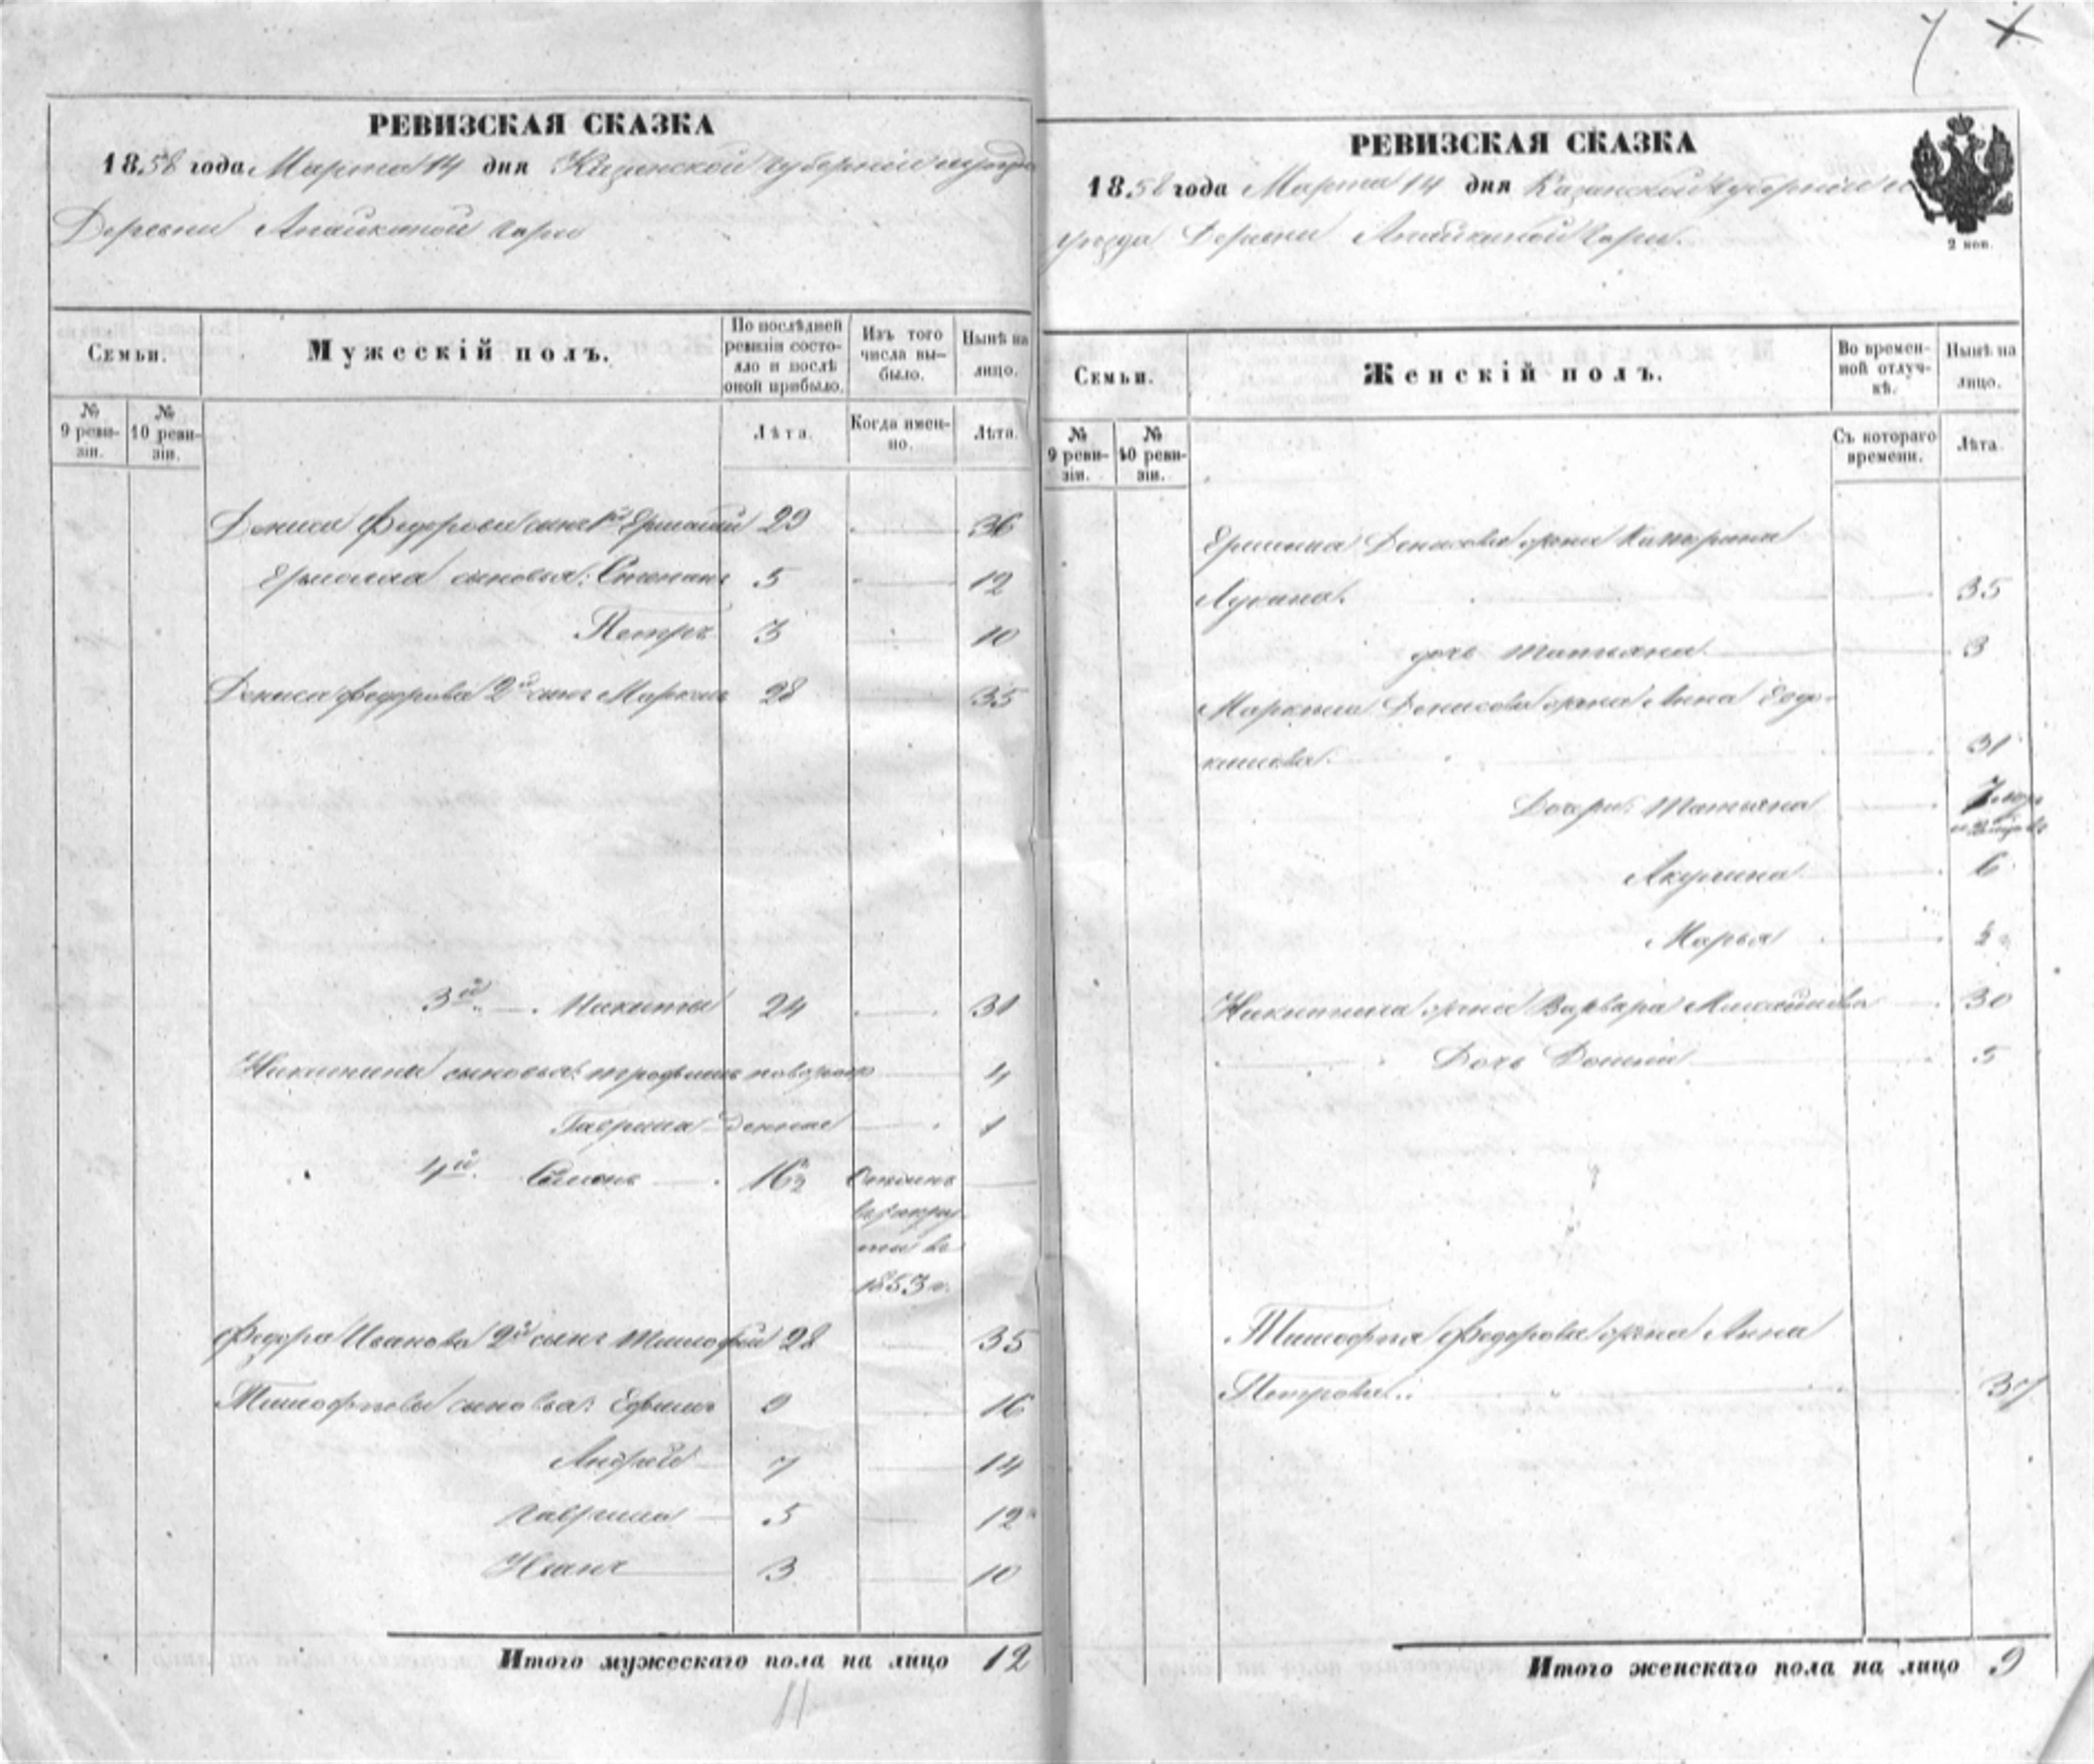 7
РЕВИЗСКАЯ СКАЗКА
1858 года Марта 14 дня Казанской губернии и уезда
Деревни Апайкиной Гари
Семьи.
Мужескій полъ.
По послѣдней ревизіи состояло и послѣ оной прибыло.
Изъ того числа выбыло.
Нынѣ на лицо.
№ 9 ревизіи.
№ 10 ревизіи.
Лѣта.
Когда именно.
Лѣта.
Дениса Федорова сынъ 1й Ермолай 29 36
Ермолая сыновья: Степанъ 5 12
Петръ 3 10
Дениса Федорова 2й сынъ Маркелъ 28 35
3й Никита 24 31
Никитины сыновья: Трофимъ 4
Гаврила 1
4й Семенъ 16½
въ 1853 г.
Федора Иванова 2й сынъ Тимофей 28 35
Тимофеевы сыновья: Ефимъ 9 16
Андрей 7 14
Гаврила 5 12
Иванъ 3 10
Итого мужескаго пола на лицо 12
11
РЕВИЗСКАЯ СКАЗКА
1858 года Марта 14 дня Казанской губерніи и
уезда Деревни Апайкиной Гари.
2 коп.
Семьи.
Женскій полъ.
Во временной отлучкѣ.
Нынѣ на лицо.
№ 9 ревизіи.
№ 10 ревизіи.
Съ котораго времени.
Лѣта.
Денисова жена Катерина
35
дочь Татьяна 3
Маркела Денисова жена Анна Евдо-
кимова. 31
Дочери: Татьяна 7
Акулина 6
Марья
Никитина жена Варвара Михайлова 30
Дочь 5
Тимофея Федорова жена Анна
Петрова 37
Итого женскаго пола на лицо 9